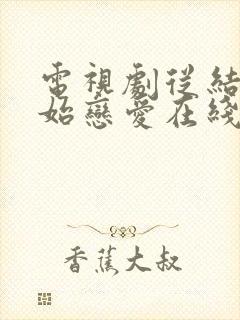 電視劇從結
始戀愛在綫
香蕉大叔